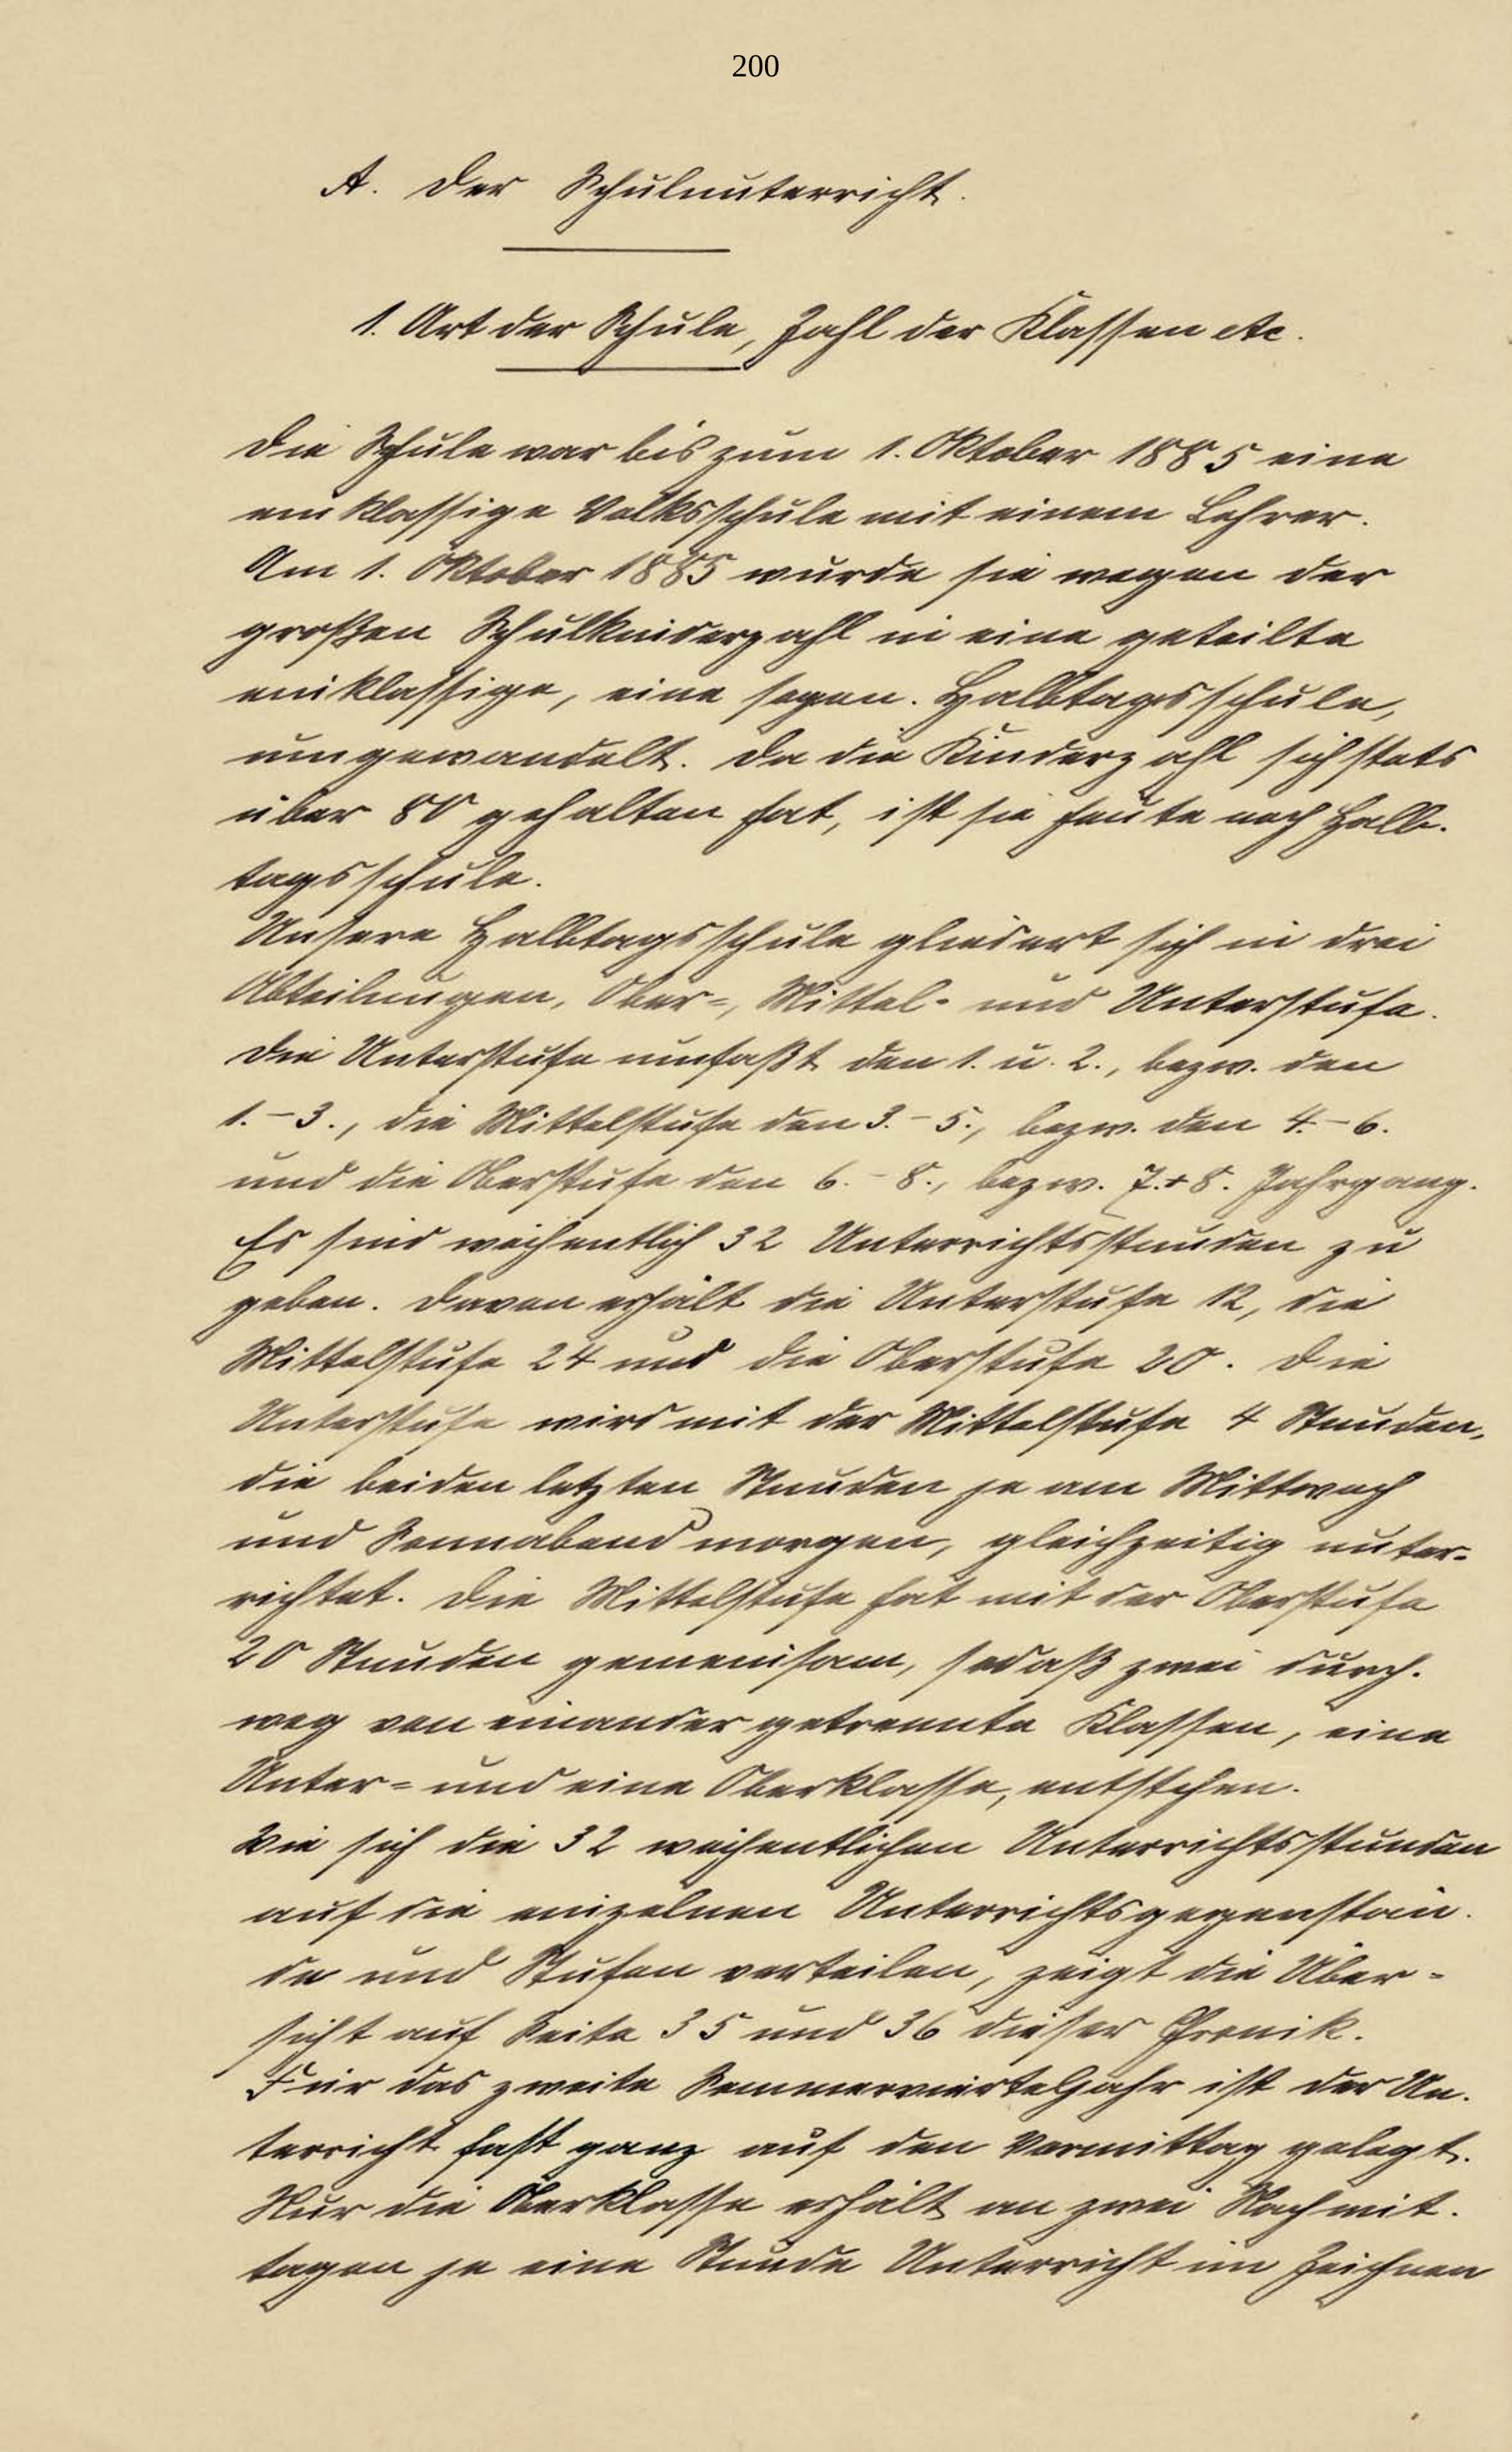 200
A. Der Schulunterricht.
1. Art der Schule, Zahl der Klassen etc.
Die Schule war bis zum 1. Oktober 1885 eine
einklassige Volksschule mit einem Lehrer.
Am 1. Oktober 1885 wurde sie wegen der
großen Schulkinderzahl in eine geteilte
einklassige, eine sogen. Halbtagsschule,
umgewandelt. Da die Kinderzahl sich stets
über 80 gehalten hat, ist sie heute noch Halb-
tagsschule.
Unsere Halbtagsschule gliedert sich in drei
Abteilungen, Ober-, Mittel- und Unterstufe.
Die Unterstufe umfaßt den 1. u. 2., bezw. den
1.-3., die Mittelstufe den 3.-5., bezw. den 4.-6.
und die Oberstufe den 6.-8., bezw. 7.+8. Jahrgang.
Es sind wöchentlich 32 Unterrichtsstunden zu
geben. Davon erhält die Unterstufe 12, die
Mittelstufe 24 und die Oberstufe 20. Die
Unterstufe wird mit der Mittelstufe 4 Stunden,
die beiden letzten Stunden je am Mittwoch
und Sonnabend morgen, gleichzeitig unter-
richtet. Die Mittelstufe hat mit der Oberstufe
20 Stunden gemeinsam, sodaß zwei durch-
weg von einander getrennte Klassen, eine
Unter- und eine Oberklasse, entstehen.
Wie sich die 32 wöchentlichen Unterrichtsstunden
auf die einzelnen Unterrichtsgegenstän-
de und Stufen verteilen, zeigt die Über-
sicht auf Seite 35 und 36 dieser Chronik.
Für das zweite Sommervierteljahr ist der Un-
terricht fast ganz auf den Vormittag gelegt.
Nur die Oberklasse erhält an zwei Nachmit-
tagen je eine Stunde Unterricht im Zeichnen